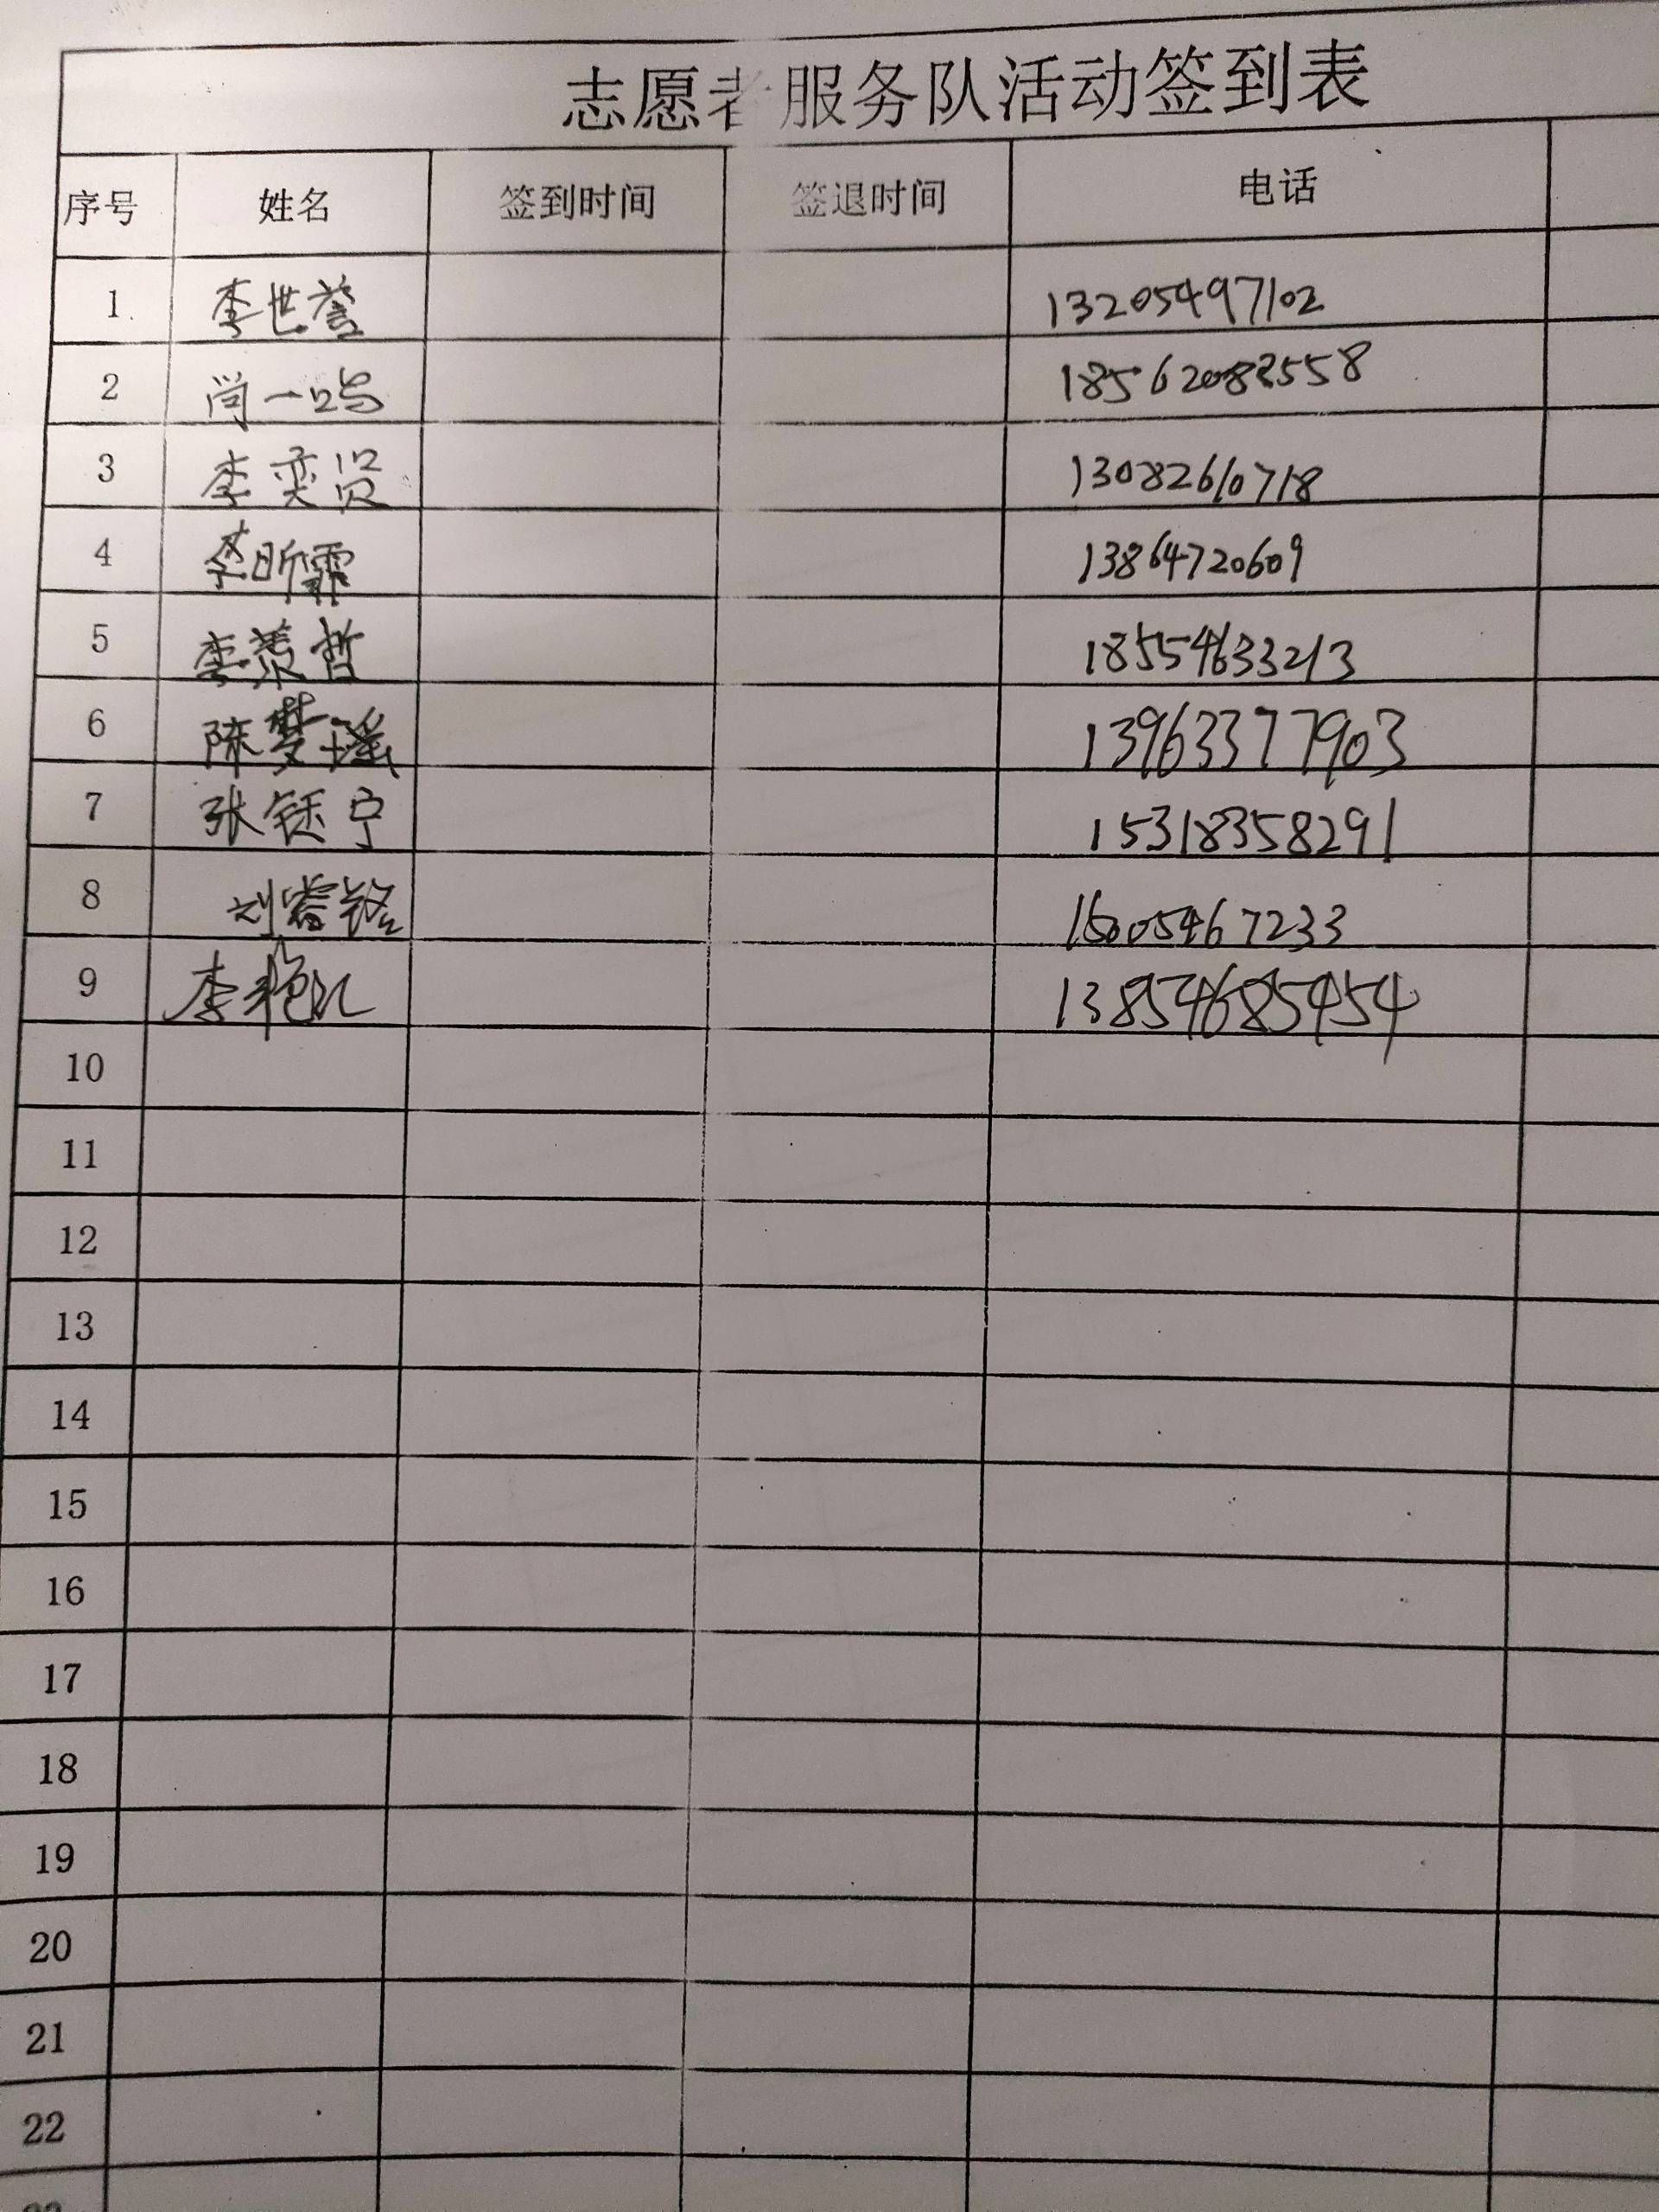 志愿者服务队活动签到表
序号 姓名 签到时间 签退时间 电话
1 李世誉 13205497102
2 尚一鸣 18562082558
3 李奕 13082610718
4 李昕霏 13864720609
5 李羡哲 18554633213
6 陈梦瑶 13963377903
7 张钰宁 15318358291
8 刘睿铭 15005467233
9 李艳 13854685454
10
11
12
13
14
15
16
17
18
19
20
21
22